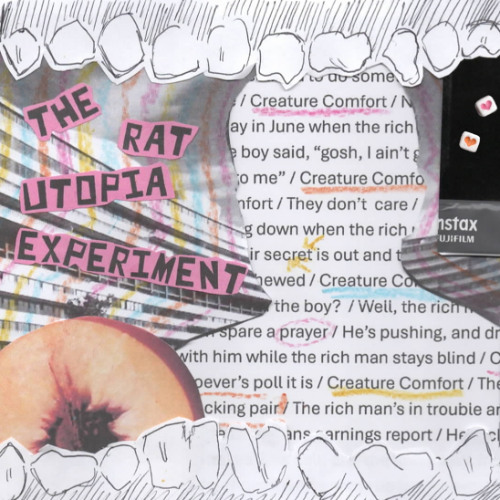 THE
RAT
UTOPIA
EXPERIMENT
to do some
/ Creature Comfort / N
ay in June when the rich
e boy said, "gosh, I ain't g
to me" / Creature Comfo
nfort / They don't care /
g down when the rich
ir secret is out and t
newed / Creature Co
the boy? / Well, the rich
spare a prayer / He's pushing, and dr
with him while the rich man stays blind / C
oever's poll it is / Creature Comfort / The
cking pair / The rich man's in trouble a
ans earnings report / He
nstax
UJIFILM